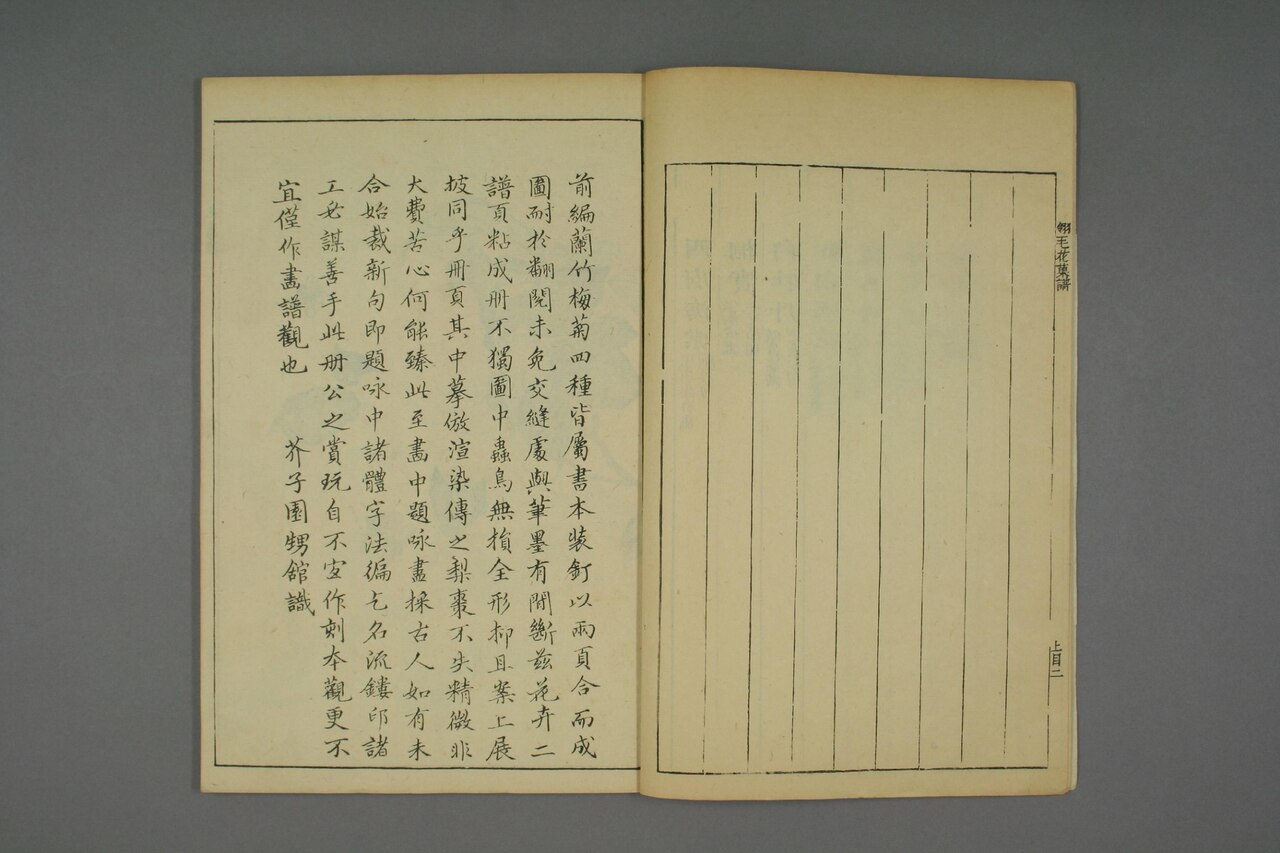 翎毛花菓譜
上目二
前編蘭竹梅菊四種皆屬書本裝釘以兩頁合而成
圖耐於翻閱未免交縫處與筆墨有間斷茲花卉二
譜頁粘成册不獨圖中蟲鳥無損全形抑且案上展
披同乎册頁其中摹倣渲染傳之梨棗不失精微非
大費苦心何能臻此至畫中題咏盡採古人如有未
合始裁新句即題咏中諸體字法徧乞名流鏤印諸
工必謀善手此册公之賞玩自不宜作刻本觀更不
宜僅作畫譜觀也　芥子園甥館識